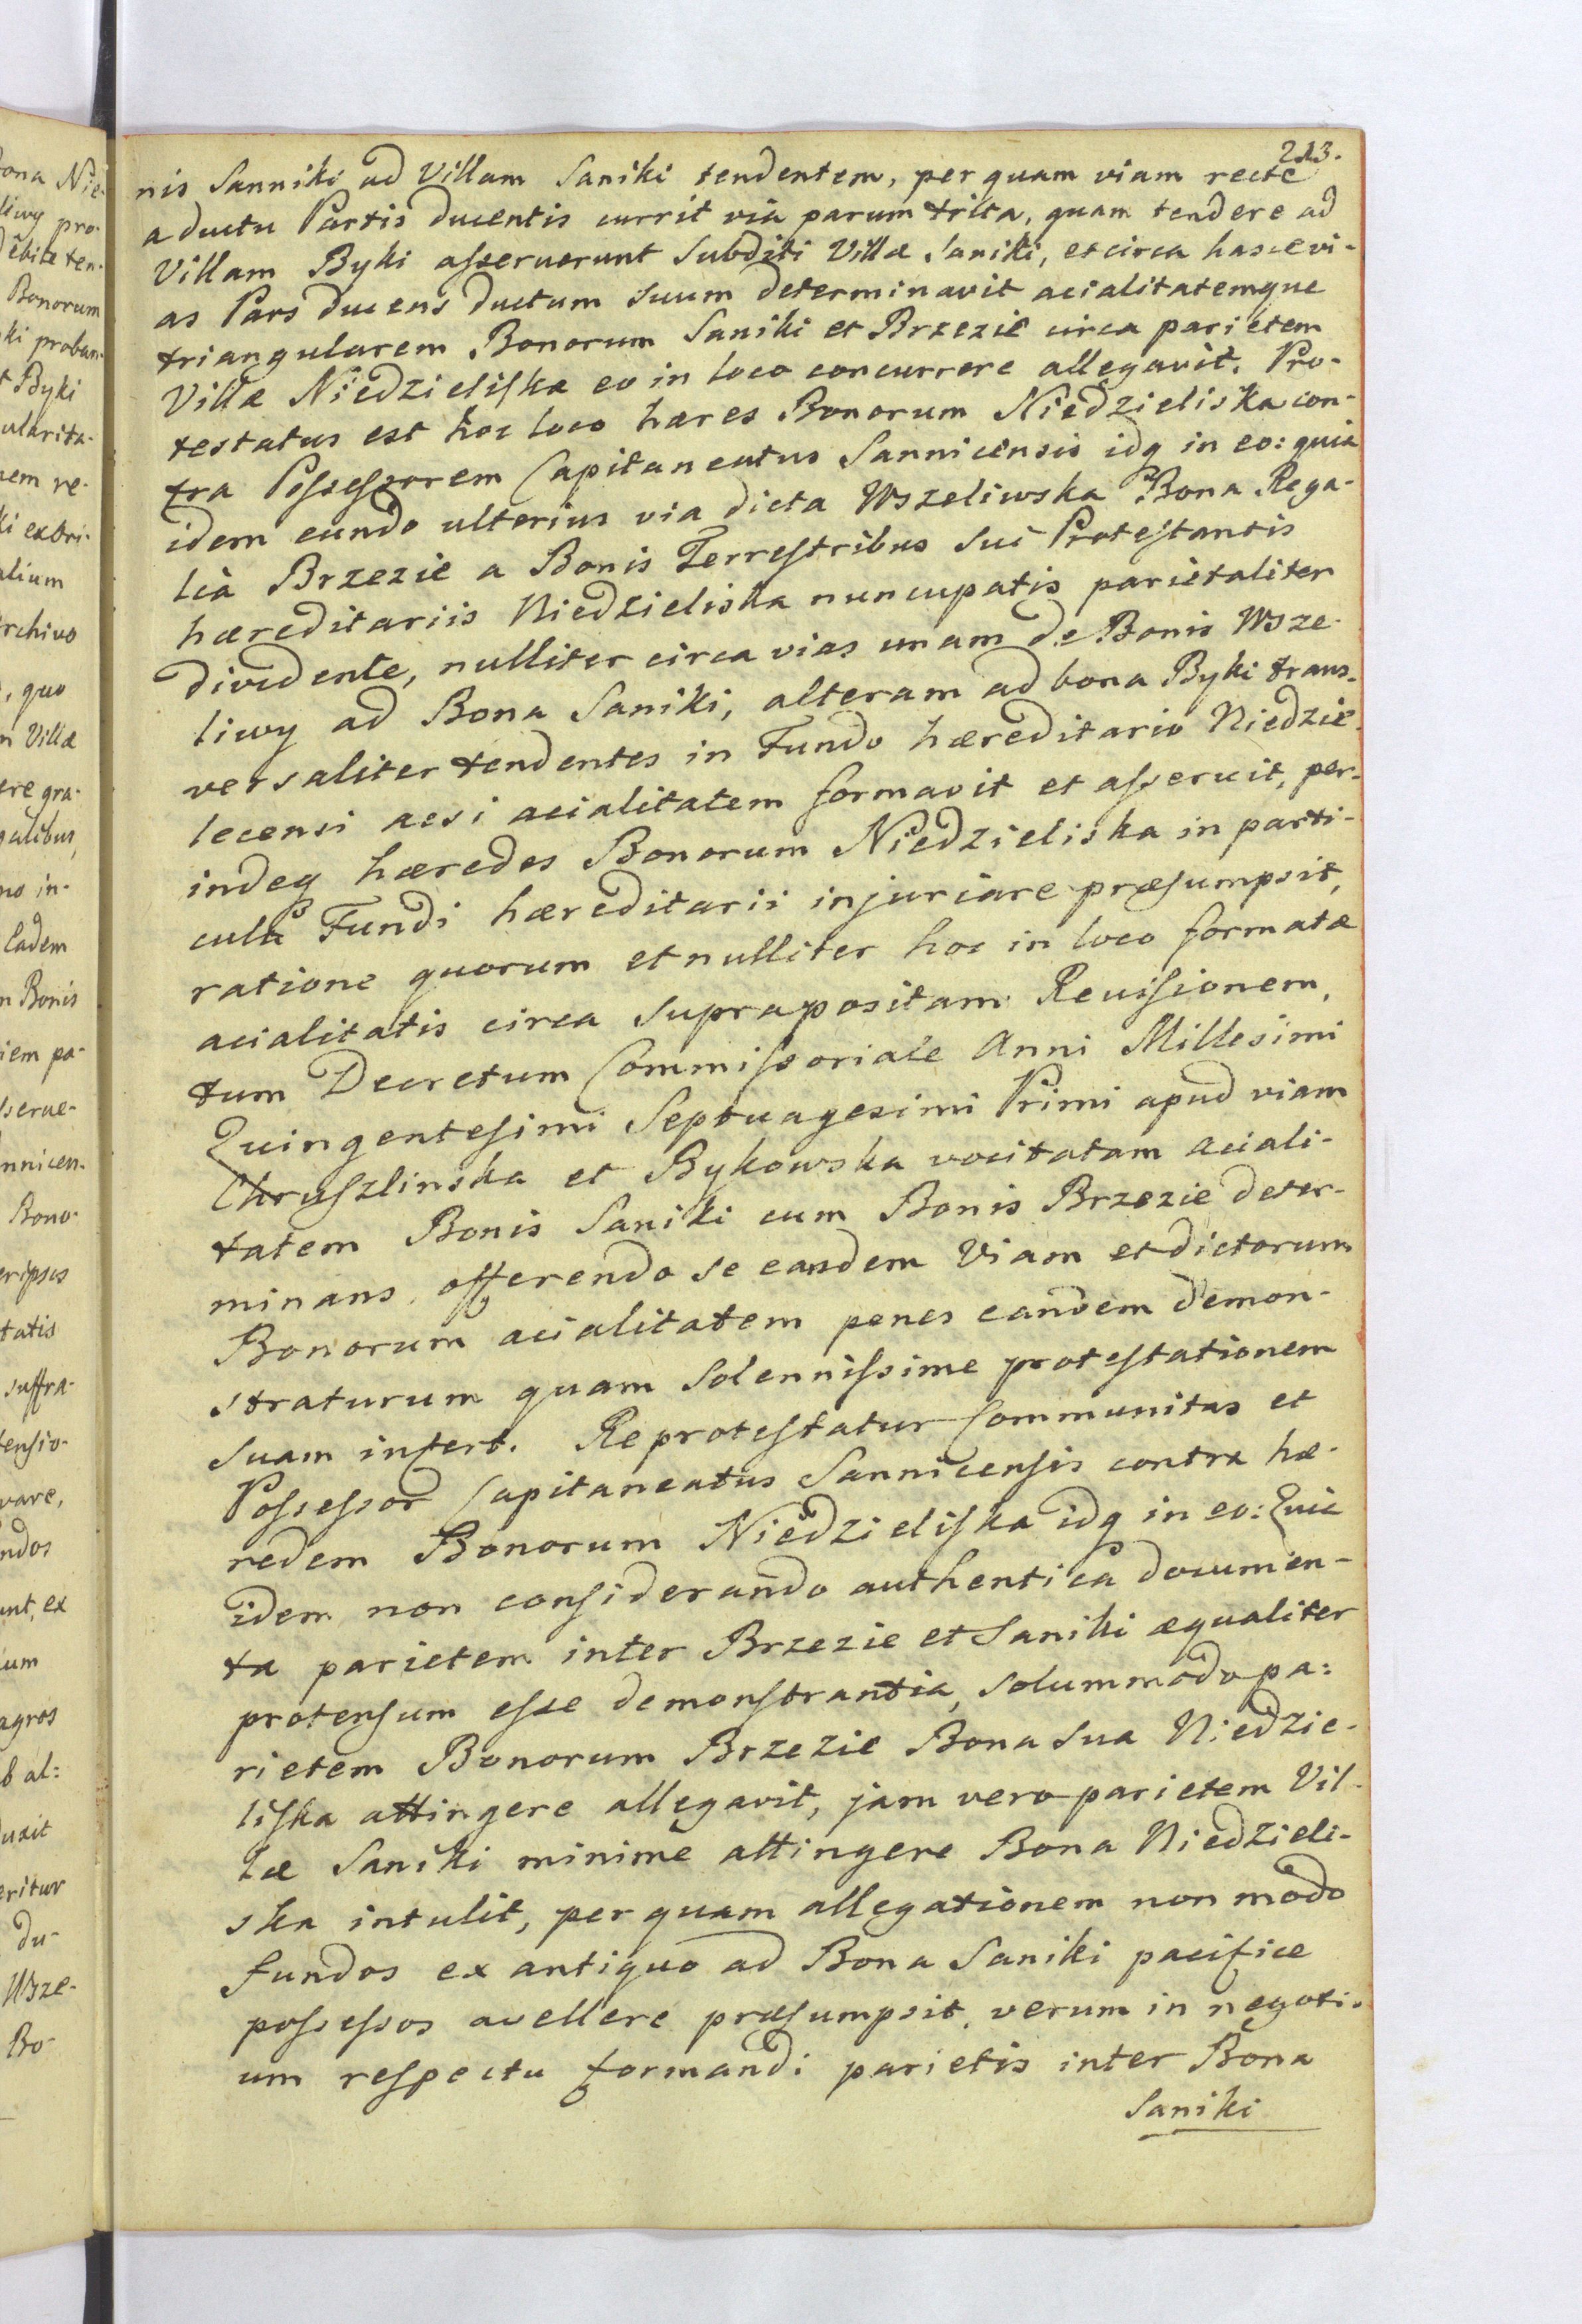 213.
nis Sanniki ad Villam Saniki tendentem, per quam viam recte
a ductu Partis ducentis currit via parum trita, quam tendere ad
Villam Byki asseruerunt Subditi Villæ Saniki, et circa hasce vi-
as Pars ducens ductum suum determinavit acialitatemque
triangularem Bonorum Saniki et Brzezie circa parietem
Villæ Niedzieliska eo in loco concurrere allegavit. Pro-
testatus est hoc loco hæres Bonorum Niedzieliska con-
tra Possessorem Capitaneatus Sannicensis idq in eo: quia
idem eundo ulterius via dicta Wszeliwska Bona Rega-
lia Brzezie a Bonis Terrestribus sui Protestantis
hæreditariis Niedzieliska nuncupatis parietaliter
dividente, nulliter circa vias unam de Bonis Wsze-
liwy ad Bona Saniki, alteram ad bona Byki trans-
versaliter tendentes in Fundo hæreditario Niedzie-
lecensi acsi acialitatem formavit et asseruit, per-
indeq hæredes Bonorum Niedzieliska in parti-
cula Fundi hæreditarii injuriare præsumpsit,
ratione quorum et nulliter hoc in loco formatæ
acialitatis circa suprapositam Revisionem,
tum Decretum Commissoriale Anni Millesimi
Quingentesimi Septuagesimi Primi apud viam
Chruszlinska et Bykowska vocitatam aciali-
tatem Bonis Saniki cum Bonis Brzezie deter-
minans offerendo se eandem Viam et dictorum
Bonorum acialitatem penes eandem demon-
straturum quam solennissime protestationem
suam infert. Reprotestatur Communitas et
Possessor Capitaneatus Sannicensis contra hæ-
redem Bonorum Niedzieliska idq in eo: Quia
idem non considerando authentica documen-
ta parietem inter Brzezie et Saniki æqualiter
protensum esse demonstrantia, solummodo pa:
rietem Bonorum Brzezie Bona sua Niedzie-
liska attingere allegavit, jam vero parietem Vil-
læ Saniki minime attingere Bona Niedzieli-
ska intulit, per quam allegationem non modo
fundos ex antiquo ad Bona Saniki pacifice
possessos avellere præsumpsit, verum in negoti-
um respectu formandi parietis inter Bona
Saniki